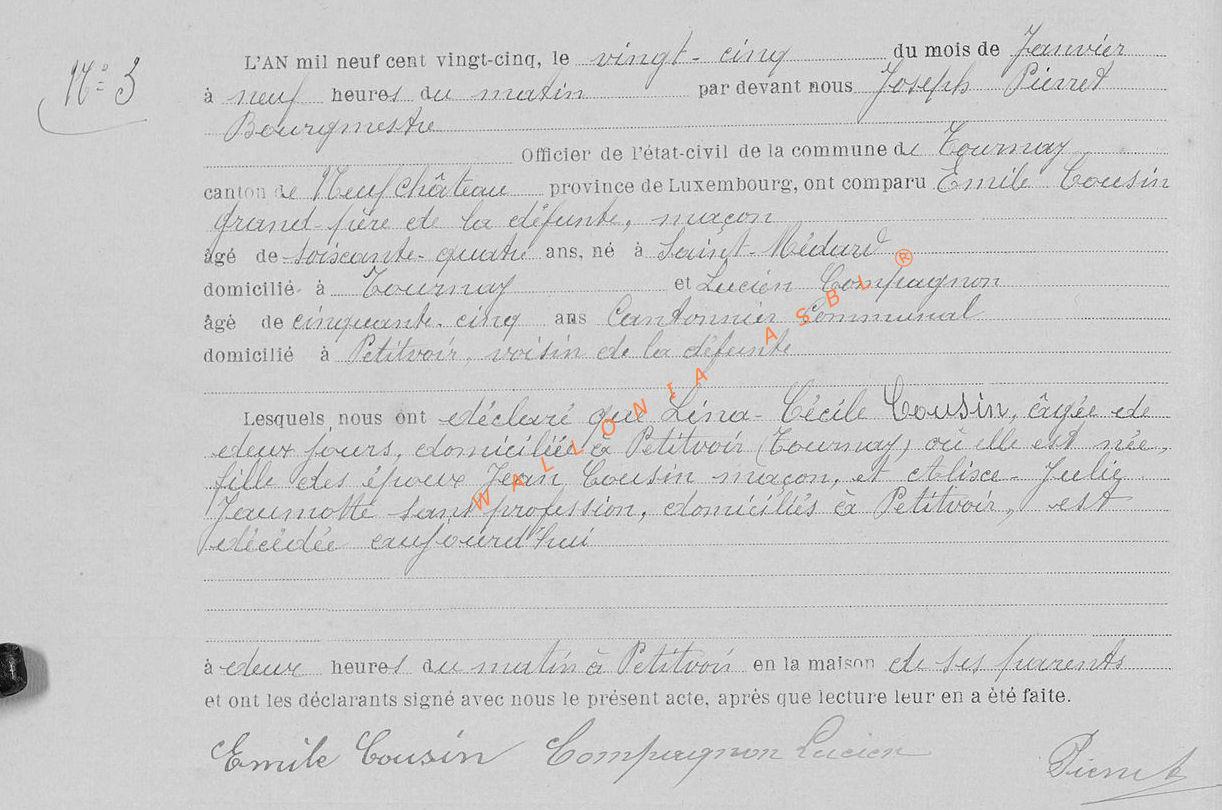 N° 3
L'AN mil neuf cent vingt-cinq, le vingt-cinq du mois de Janvier
à neuf heures du matin par devant nous Joseph Pierret
Bourgmestre
Officier de l'état-civil de la commune de Tournay
canton de Neufchâteau province de Luxembourg, ont comparu Emile Cousin
grand-père de la défunte, maçon
âgé de soixante-quatre ans, né à Saint-Médard
domicilié à Tournay et Lucien Compagnon
âgé de cinquante-cinq ans Cantonnier Communal
domicilié à Petitvoir, voisin de la défunte
Lesquels nous ont déclaré que Lina-Cécile Cousin, âgée de
deux jours, domiciliée à Petitvoir (Tournay) où elle est née,
fille des époux Jean Cousin maçon, et Alisce-Julie
Jaumotte sans profession, domiciliés à Petitvoir, est
décédée aujourd'hui
à deux heures du matin à Petitvoir en la maison de ses parents
et ont les déclarants signé avec nous le présent acte, après que lecture leur en a été faite.
Emile Cousin Compagnon Lucien Pierret
WALLONIA ASBL ®